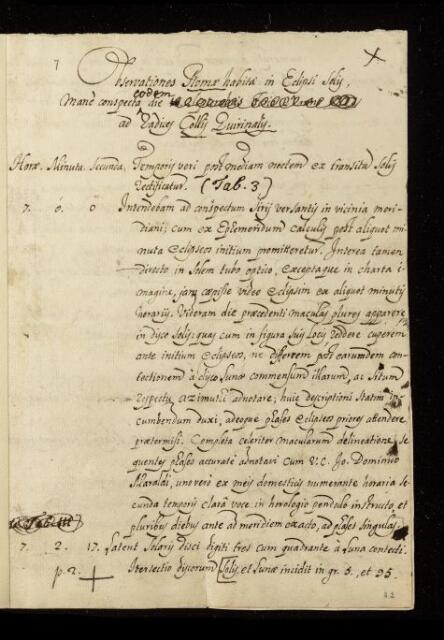 7
Observationes Romæ habitæ in Eclipsi Solis,
Manè conspecta eodem die
ad Radices Collis Quirinalis.
Horæ. Minuta. Secunda. Temporis veri post mediam noctem ex transitu Solis
rectificatur. (Tab. 3)
7. 0. 0 Intendebam ad conspectum Sirij versantis in vicinia meri-
diani; cum ex Ephemeridum calculis post aliquot mi-
nuta eclipseos initium promitteretur. Interea tamen
directo in Solem tubo optico, exceptaque in charta i-
magine, jam cœpisse video eclipsim ex aliquot minutis
horarijs. Videram die præcedenti maculas plures apparere
in disco solis; quas cum in figura suis locis reddere cuperem
ante initium eclipseos, ne differrem post earumdem con-
tectionem à disco Lunæ commensum illarum, ac situm
respectu azimuti adnotare; huic descriptioni statim in-
cumbendum duxi, adeoque phases eclipseos priores attendere
prætermisi. Completa celeriter macularum delineatione, se-
quentes phases accuratè adnotavi cum V. C. Jo. Dominico
Maraldi, uno verò ex meis domesticis numerante horaria se-
cunda temporis clarâ voce in horologio pendulo instructo, et
pluribus diebus ante ad meridiem exacto, ad phases singulas.
7. 2. 17. Latent solaris disci digiti tres cum quadrante à Luna contecti.
p. 2. Itersectio discorum Solis, et Lunæ incidit in gr. 5. et 95.